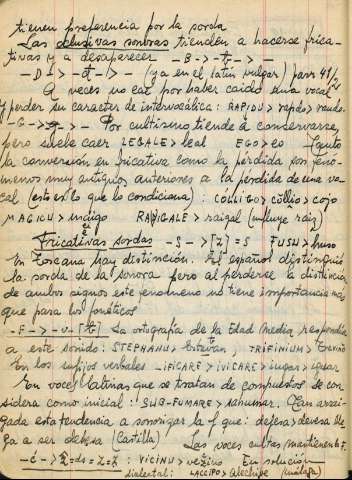 tienen preferencia por la sorda
Las oclusivas sonoras tienden a hacerse frica-
tivas y a desaparecer - B - > - ƀ - > -
- D - > - đ - > - (ya en el latín vulgar) parr 41/2
A veces no cae por haber caído una vocal
y perder su caracter de intervocálica: RAPIDU > rapdo > raudo
- G - > - > - Por cultismo tiende a conservarse
pero suele caer LEGALE > leal EGO > eo (tanto
la conversión en fricativa como la pérdida son fenó-
menos muy antiguos anteriores a la pérdida de una vo-
cal (esto es lo que lo condiciona): COLLIGO > collio > cojo
MAGICU > mdigo RADICALE > raizal (influye raíz)
Fricativas sordas - S - > [z] = S FUSU > huso
En Toscana hay distinción. El español distinguió
la sorda de la sonora pero al perderse la distinción
de ambos signos este fenomeno no tiene importancia más
que para los foneticos
- F - > - v - [ƀ] La ortografía de la Edad Media respondía
a este sonido: STEPHANU > Estevan, TRIFINIUM > Treviño
En los sufijos verbales _IFICARE > IVICARE > iugar > iguar
En voces latinas que se tratan de compuestos se con-
sidera como inicial: SUB-FUMARE > sahumar. Tan arrai-
gada esta tendencia a sonorizar la f que: defesa > devesa lle-
ga a ser debesa (Castilla) Las voces cultas mantienen F.
VICINU > vezino En solución
dialectal: LACCIPO > Alechipe (Málaga)